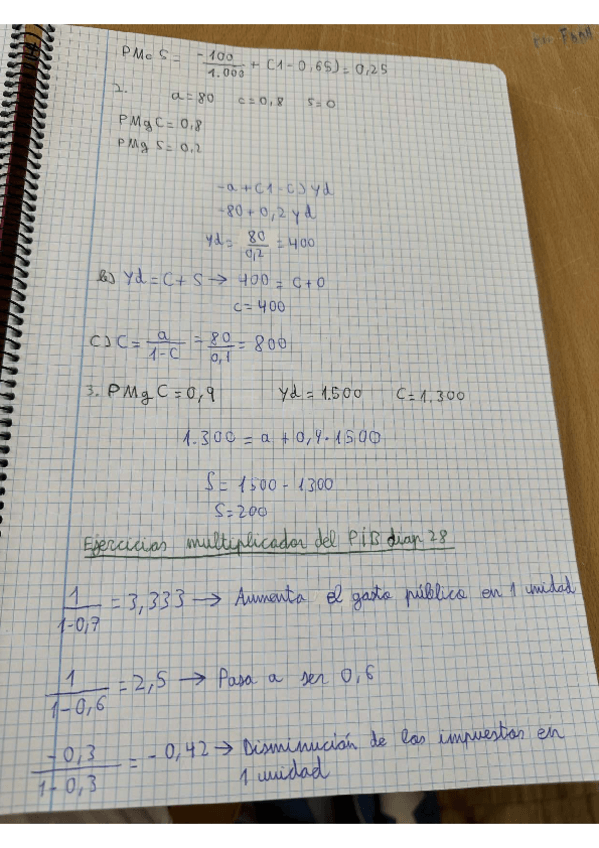 PMe S = -100/1.000 + (1-0,65) = 0,25
2. a=80 c=0,8 s=0
PMgC=0,8
PMg S=0,2
-a+(1-c) yd
-80+0,2 yd
yd = 80/0,2 = 400
b) Yd = C+S → 400 = C+0
C=400
C) C = a/1-C = 80/0,1 = 800
3. PMgC=0,9 Yd=1.500 C=1.300
1.300 = a + 0,4·1500
S = 1500 - 1300
S=200
Ejercicios multiplicador del PiB diap 28
1/1-0,7 = 3,333 → Aumenta el gasto público en 1 unidad
1/1-0,6 = 2,5 → Pasa a ser 0,6
-0,3/1-0,3 = -0,42 → Disminución de los impuestos en
1 unidad